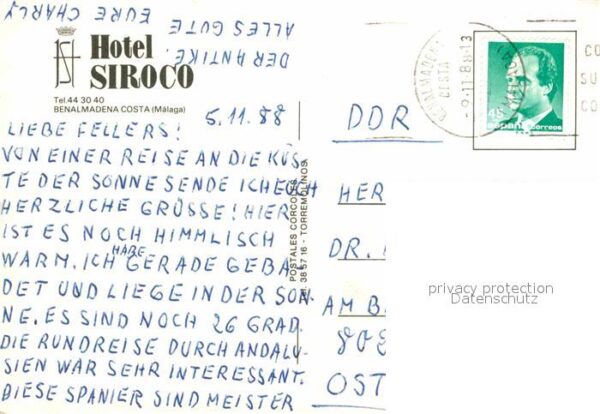 Hotel
SIROCO
Tel.44 30 40
BENALMADENA COSTA (Málaga)
5.11.88
LIEBE FELLERS!
VON EINER REISE AN DIE KÜS-
TE DER SONNE SENDE ICH EUCH
HERZLICHE GRÜSSE! HIER
IST ES NOCH HIMMLISCH
WARM. ICH HABE GERADE GEBA-
DET UND LIEGE IN DER SON-
NE. ES SIND NOCH 26 GRAD.
DIE RUNDREISE DURCH ANDALU-
SIEN WAR SEHR INTERESSANT.
DIESE SPANIER SIND MEISTER
DER ANTIKE.
ALLES GUTE EURE CHARLY
POSTALES CORCOLES
Tel. 38 57 16 - TORREMOLINOS
BENALMADENA
COSTA
-9-11-88-13
45
España correos
CO
SU
CO
DDR
HER
DR.
AM B
OST
privacy protection
Datenschutz